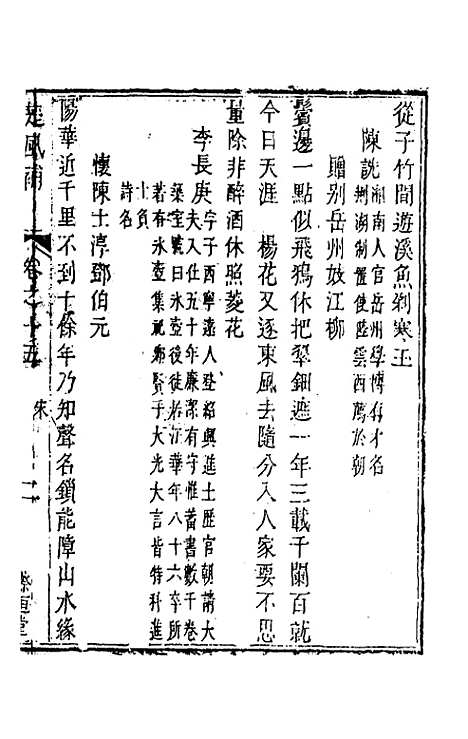 從子竹間遊溪魚剩寒玉
陳詵湘南人官岳州學博有才名
荆湖制置使陸雲西薦於朝
贈別岳州妓江柳
鬢邊一點似飛鴉休把翠鈿遮一年三載千闌百就
今日天涯　楊花又逐東風去隨分入人家要不思
量除非醉酒休照菱花
李長庚字子西寧遠人登紹興進士歷官朝請大
夫入仕五十年廉潔有守惟蓄書數千卷
築室號曰氷壺後徙老江華年八十六卒所
若有氷壺集祀鄉賢子大光大言皆特科進
士負
詩名
懷陳士淳鄧伯元
陽華近千里不到十餘年乃知聲名鎖能障山水緣
楚風補
卷之十五
宋
二